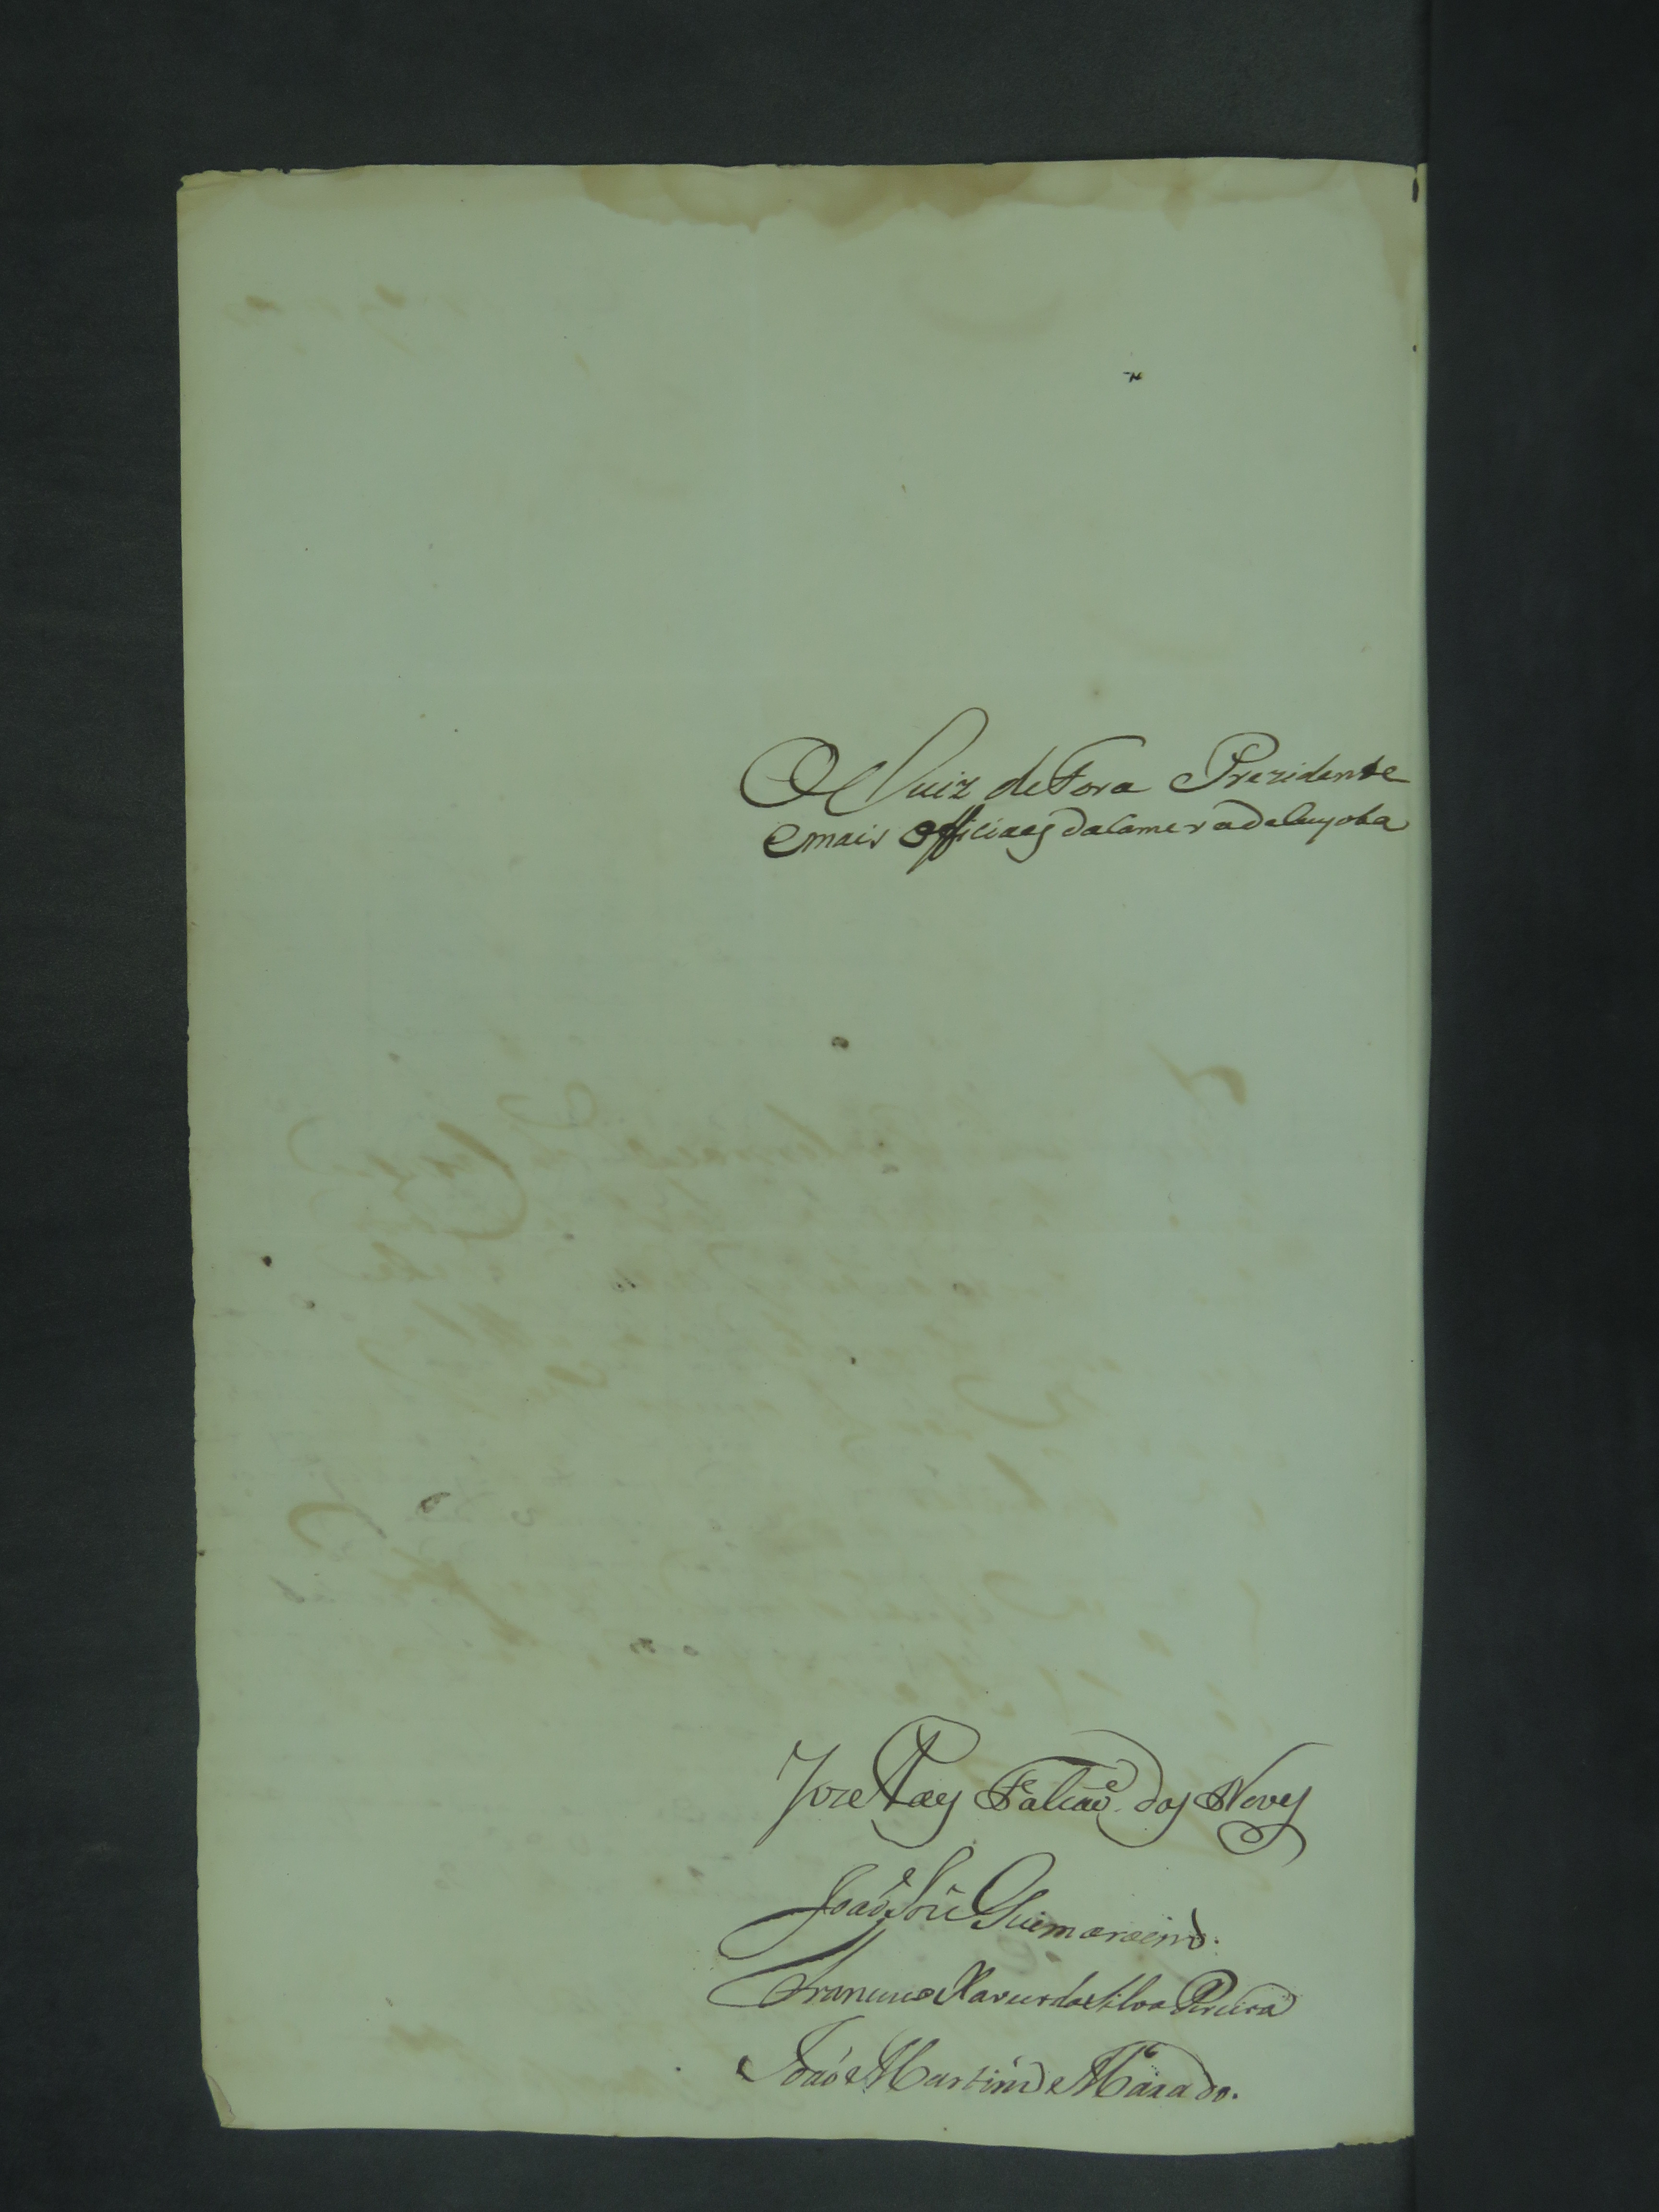 O Juiz de Fora Prezidente
e mais Officiaes da Camera de Cuyaba
Joze Paes Falcaõ das Neves
Joaõ Joze Guimaraens.
Francisco Xavier da Silva Pereira
Joaõ Martins